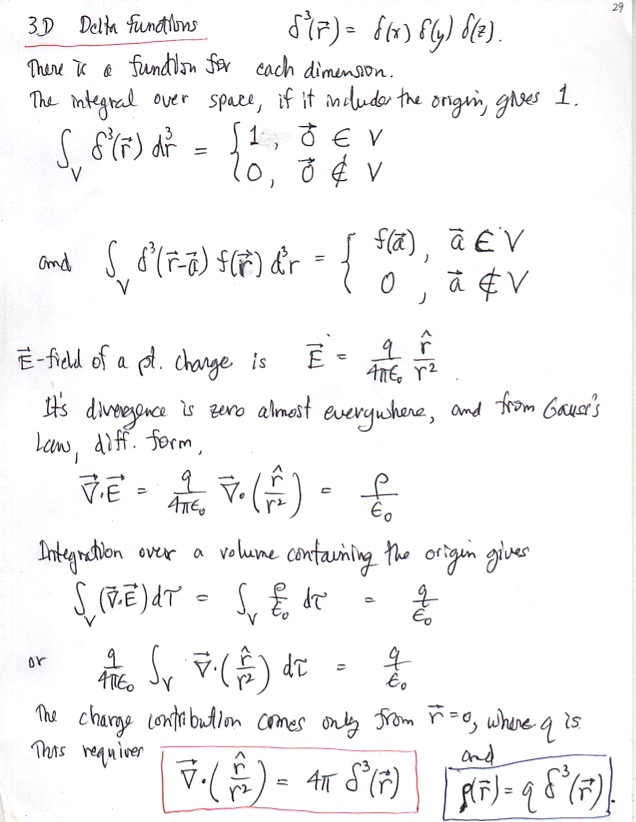 29
3D Delta Functions δ³(r⃗) = δ(x) δ(y) δ(z).
There is a function for each dimension.
The integral over space, if it includes the origin, gives 1.
∫_V δ³(r⃗) dr⃗³ = { 1, 0⃗ ∈ V
0, 0⃗ ∉ V
and ∫_V δ³(r⃗-a⃗) f(r⃗) d³r = { f(a⃗), a⃗ ∈ V
0, a⃗ ∉ V
E⃗-field of a pt. charge is E⃗ = q/4πε₀ r̂/r²
It's divergence is zero almost everywhere, and from Gauss's
Law, diff. form,
∇⃗·E⃗ = q/4πε₀ ∇⃗·(r̂/r²) = ρ/ε₀
Integration over a volume containing the origin gives
∫_V (∇⃗·E⃗)dτ = ∫_V ρ/ε₀ dτ = q/ε₀
or q/4πε₀ ∫_V ∇⃗·(r̂/r²) dτ = q/ε₀
The charge contribution comes only from r⃗=0, where q is.
This requires ∇⃗·(r̂/r²) = 4π δ³(r⃗) and ρ(r⃗) = q δ³(r⃗).